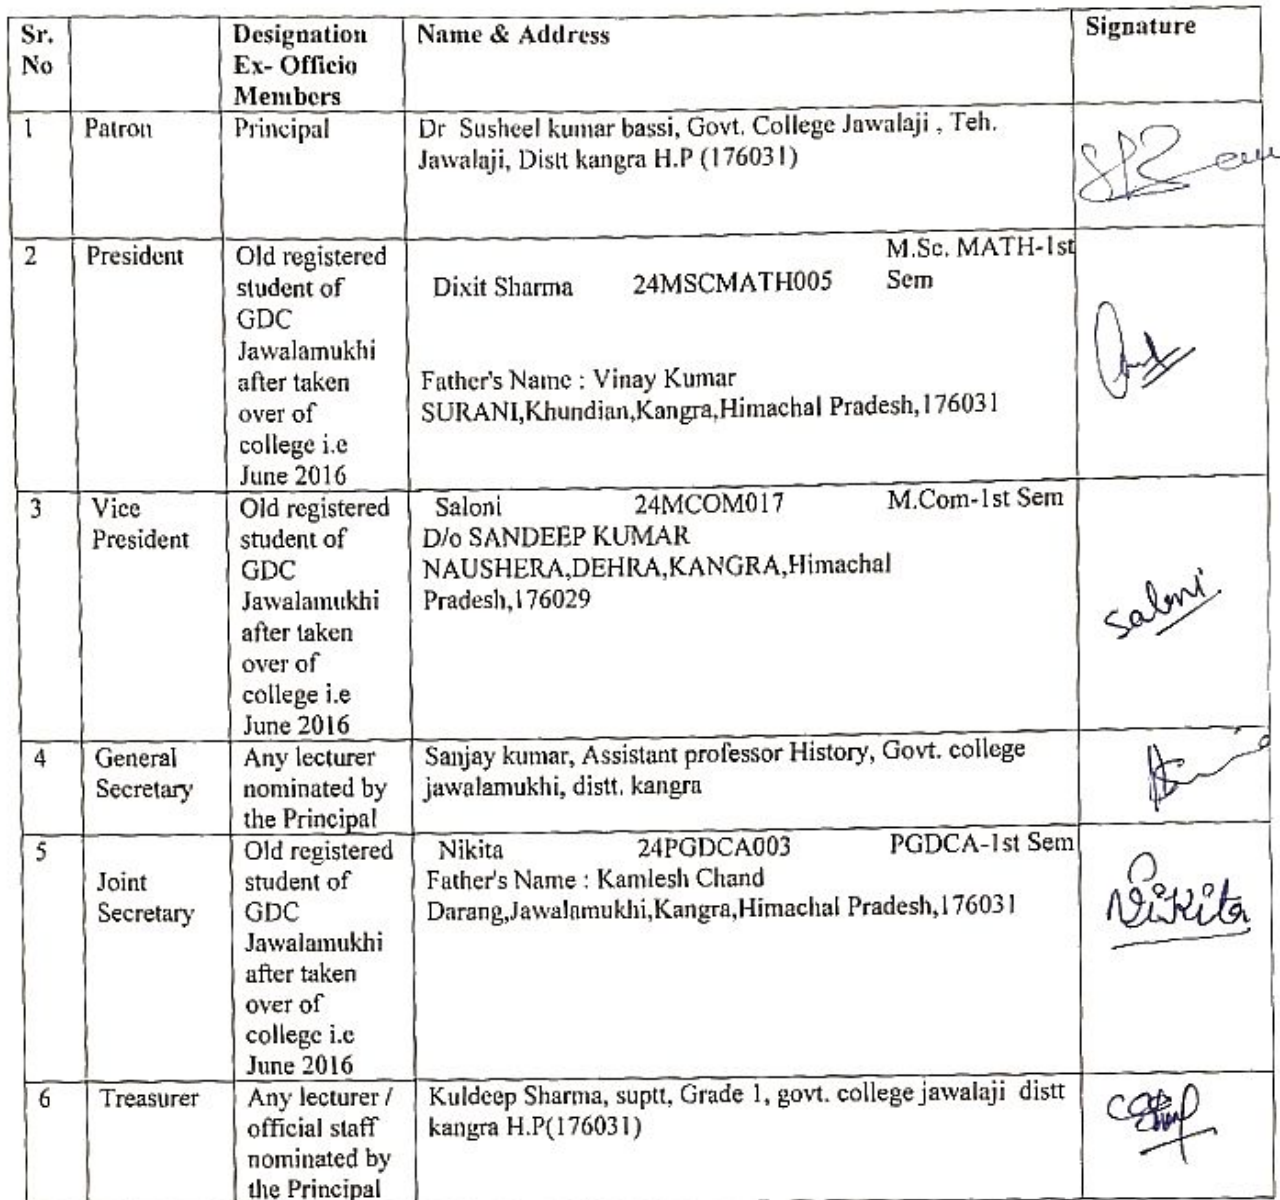 Sr.
No
Designation
Ex- Officio
Members
Name & Address
Signature
1
Patron
Principal
Dr Susheel kumar bassi, Govt. College Jawalaji , Teh.
Jawalaji, Distt kangra H.P (176031)
2
President
Old registered
student of
GDC
Jawalamukhi
after taken
over of
college i.e
June 2016
Dixit Sharma 24MSCMATH005
M.Sc. MATH-1st
Sem
Father's Name : Vinay Kumar
SURANI,Khundian,Kangra,Himachal Pradesh,176031
3
Vice
President
Old registered
student of
GDC
Jawalamukhi
after taken
over of
college i.e
June 2016
Saloni 24MCOM017 M.Com-1st Sem
D/o SANDEEP KUMAR
NAUSHERA,DEHRA,KANGRA,Himachal
Pradesh,176029
Saloni
4
General
Secretary
Any lecturer
nominated by
the Principal
Sanjay kumar, Assistant professor History, Govt. college
jawalamukhi, distt. kangra
5
Joint
Secretary
Old registered
student of
GDC
Jawalamukhi
after taken
over of
college i.e
June 2016
Nikita 24PGDCA003 PGDCA-1st Sem
Father's Name : Kamlesh Chand
Darang,Jawalamukhi,Kangra,Himachal Pradesh,176031
Nikita
6
Treasurer
Any lecturer /
official staff
nominated by
the Principal
Kuldeep Sharma, suptt, Grade 1, govt. college jawalaji distt
kangra H.P(176031)